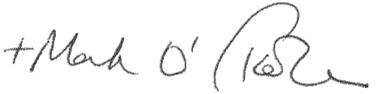 +Mark O'Toole